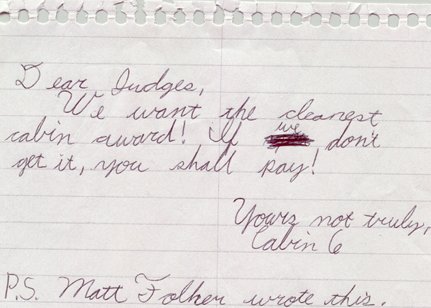 Dear Judges,
We want the cleanest
cabin award! If we don't
get it, you shall pay!
Yours not truly,
Cabin 6
P.S. Matt Folker wrote this.